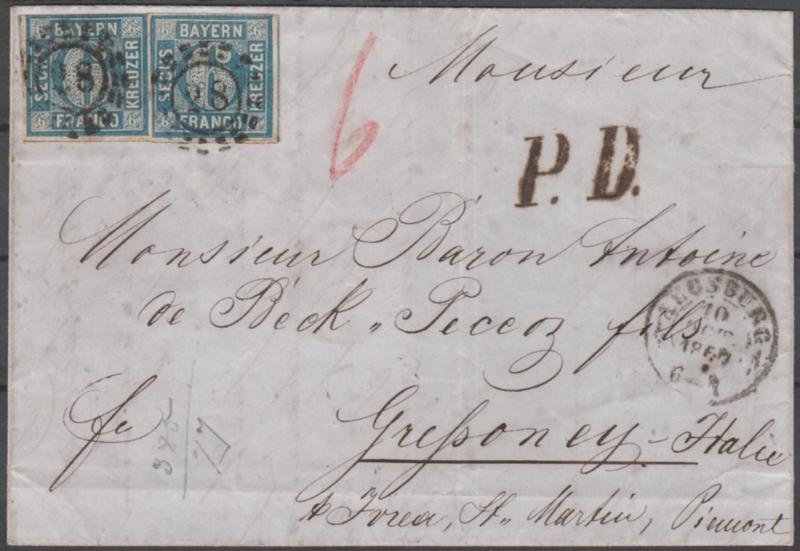 BAYERN
SECHS
6
KREUZER
FRANCO
18
BAYERN
SECHS
6
KREUZER
FRANCO
18
6
Monsieur
P. D.
Monsieur Baron Antoine
de Beck-Peccoz fils
AUGSBURG
10
186
6
fr
Gressoney-Italie
p Ivrea, St. Martin, Piemont
385
27